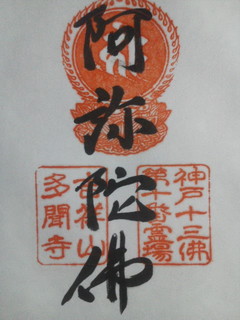 神戸十三佛
第十番霊場
阿弥陀佛
吉祥山
多聞寺